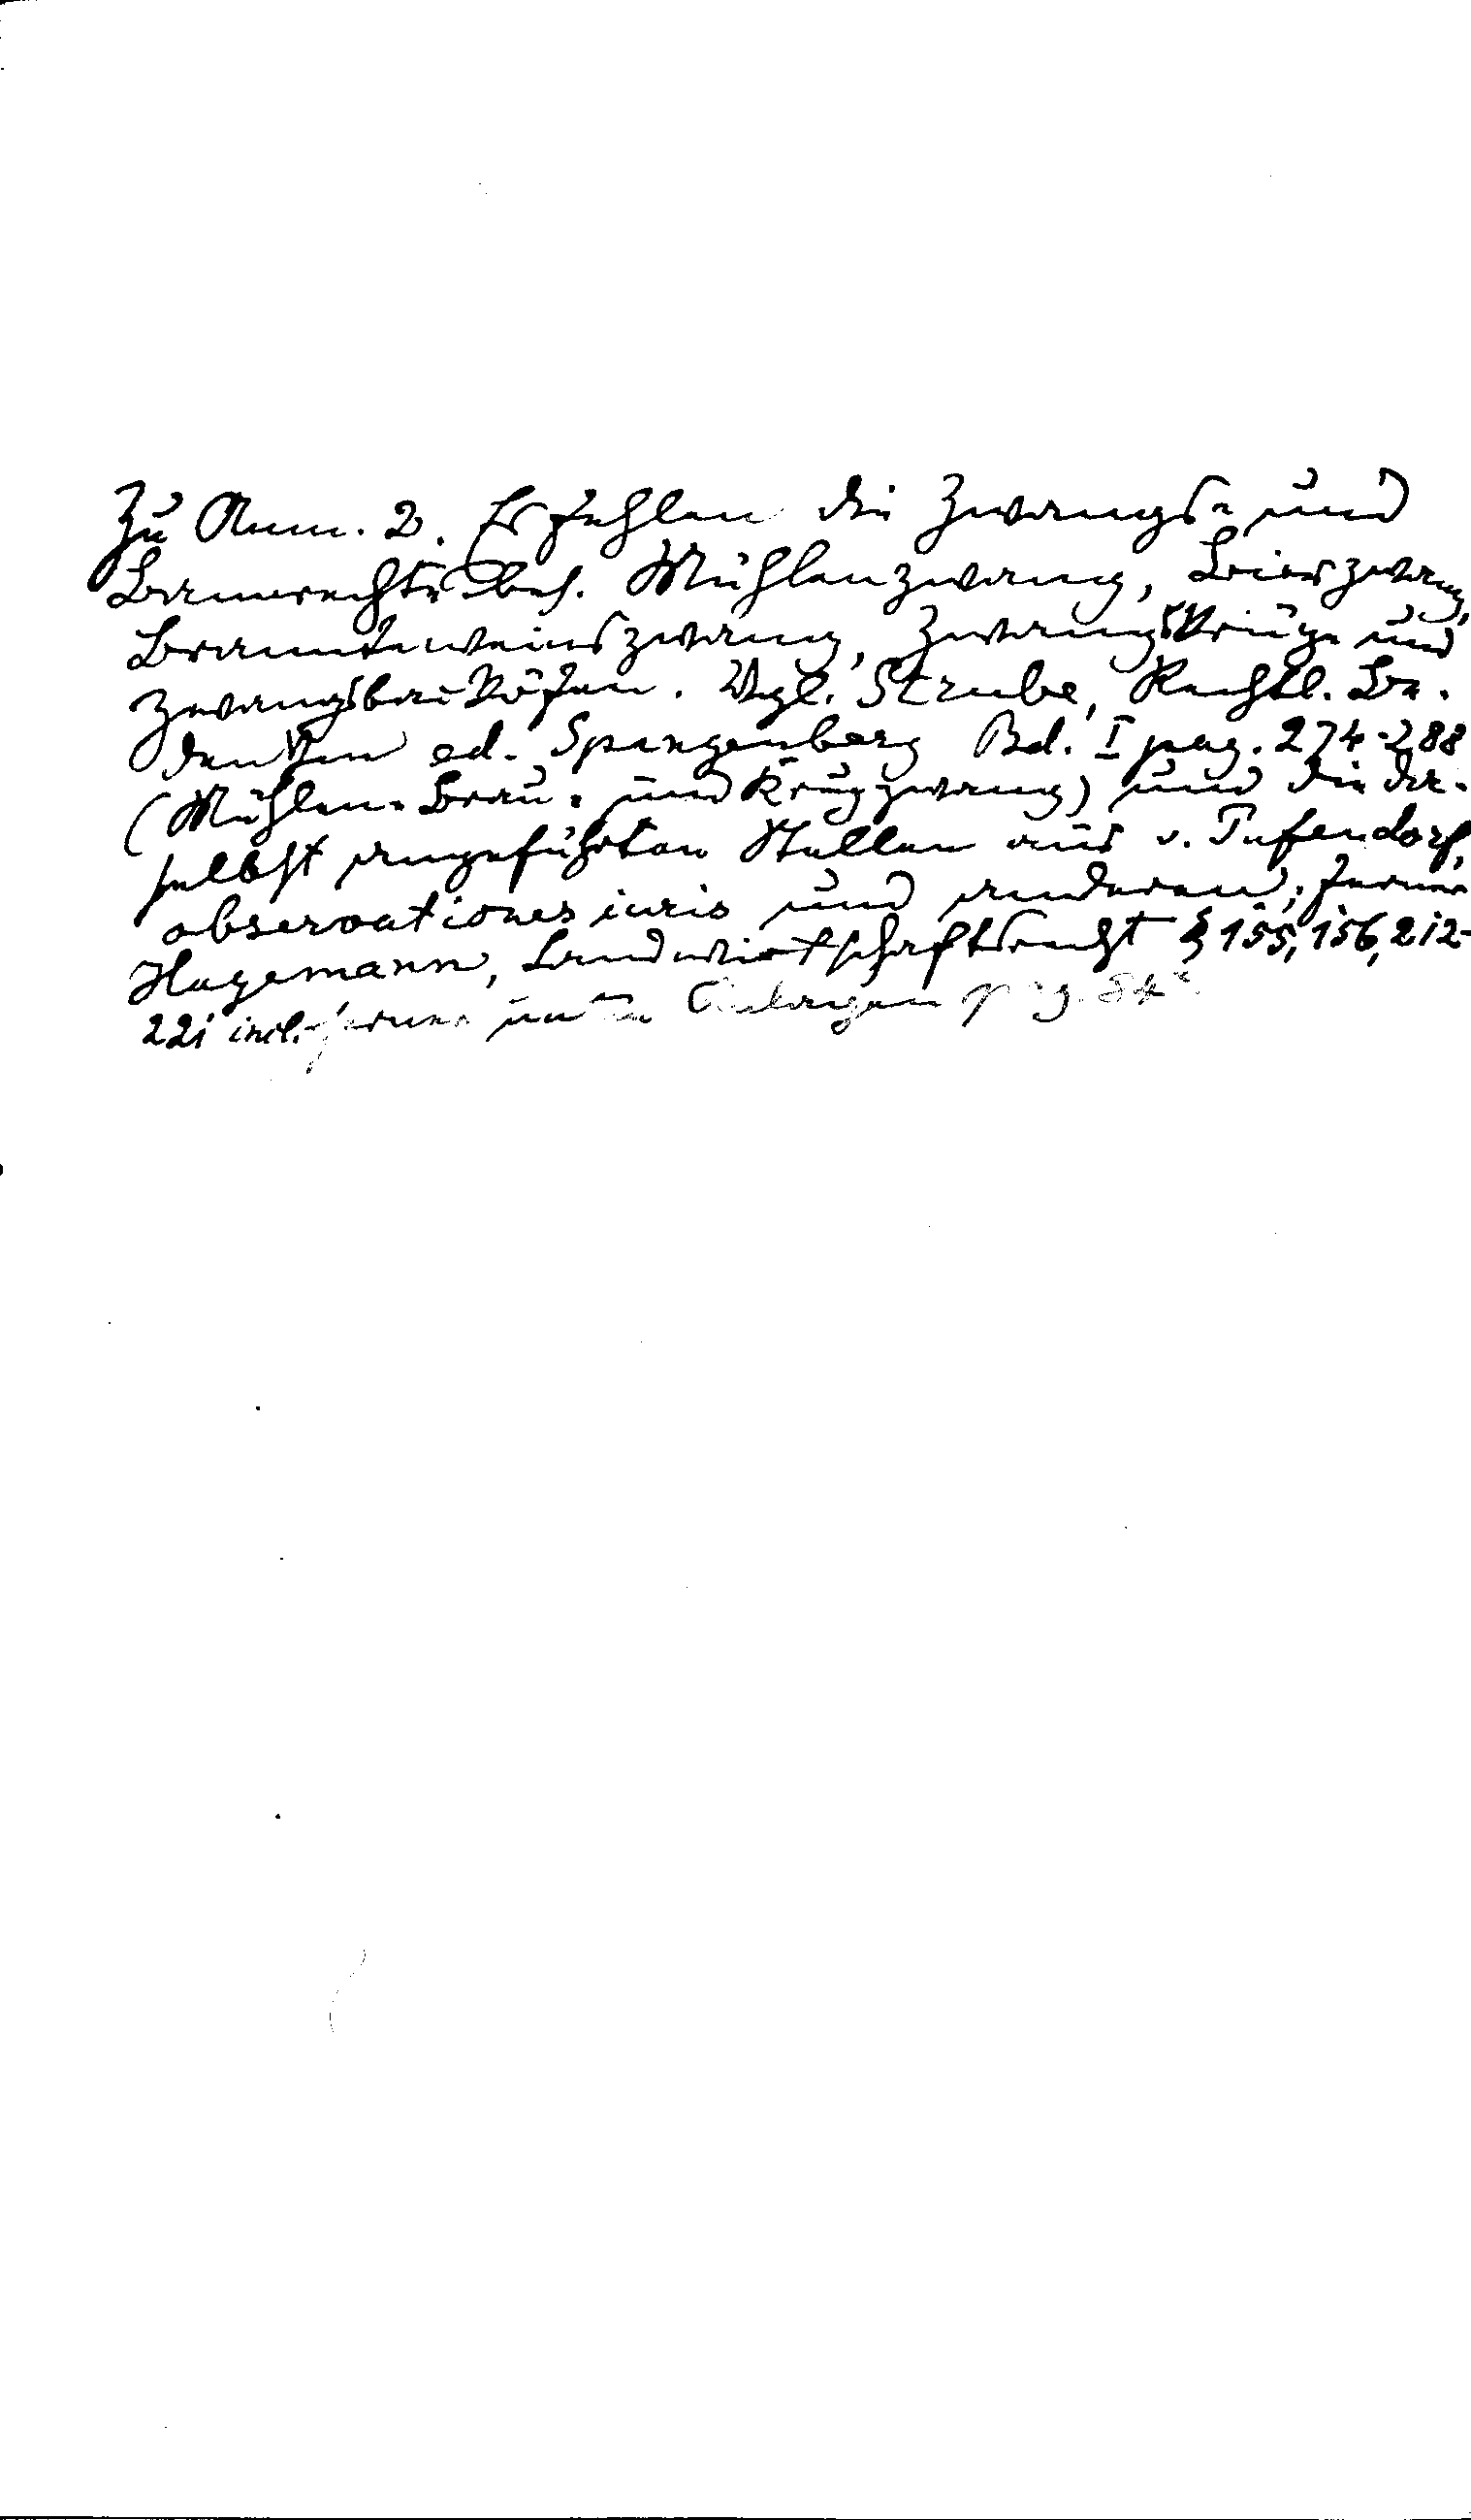 Zu Anm. 2. Es fehlen die Zwangs- und
Bannrechte bes. Mühlenzwang, Bierzwang,
Branntweinszwang, Zwangskrüge und
Zwangsbacköfen. Vgl. Strube, Rechtl. Be-
denken ed. Spangenberg Bd. I pag. 274-288
(Mühlen- Brau- und Krugzwang) und die da-
selbst angeführten Stellen aus v. Pufendorf,
observationes iuris und anderen; ferner
Hagemann, Landwirtschaftsrecht § 155, 156, 212-
221 incl. ferner unten Anlagen pag.